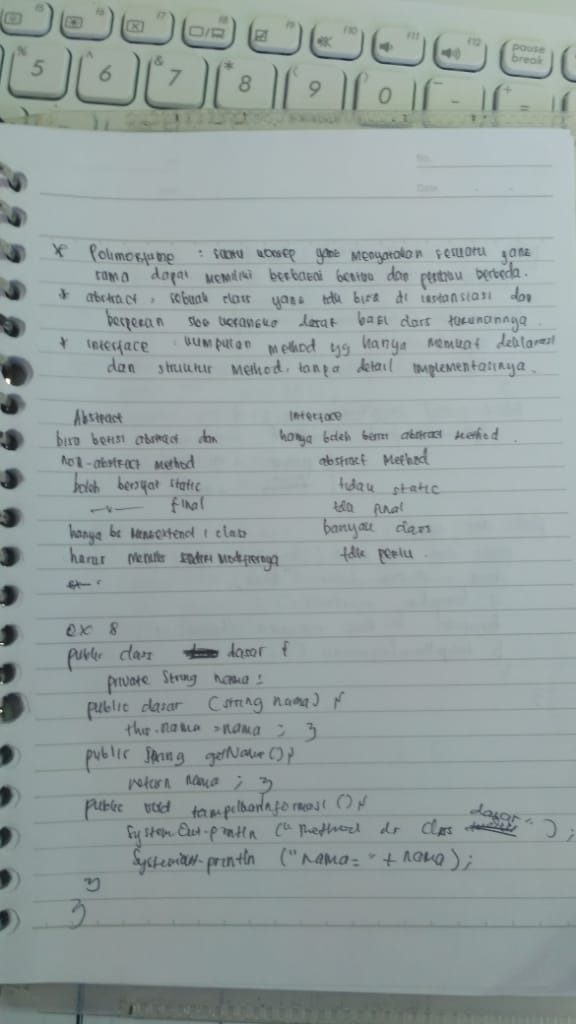 F5 F6 F7 F8 F9 F10 F11 F12 pause break
% 5 ^ 6 & 7 * 8 ( 9 ) 0 _ - + =
No.
Date
* Polimorfisme : suatu konsep yang menyatakan sesuatu yang
sama dapat memiliki berbagai bentuk dan perilaku berbeda.
* abstract, sebuah class yang tdk bisa di instansiasi dan
berperan sbg kerangka dasar bagi class turunannya.
* interface : kumpulan method yg hanya memuat deklarasi
dan struktur method, tanpa detail implementasinya.
Abstract Interface
bisa berisi abstract dan hanya boleh berisi abstract method.
non-abstract method abstract Method
boleh bersifat static tidak static
final tdk final
hanya bs mengextend 1 class banyak class
harus menulis sendiri modifiernya tdk perlu.
ex 8
public class dasar {
private String nama;
public dasar (string nama) {
this.nama = nama ; }
public String getName () {
return nama ; }
public void tampilkanInformasi () {
System.Out.println ("Method dr Class dasar" ) ;
System.out.println ("nama= " + nama) ;
}
}